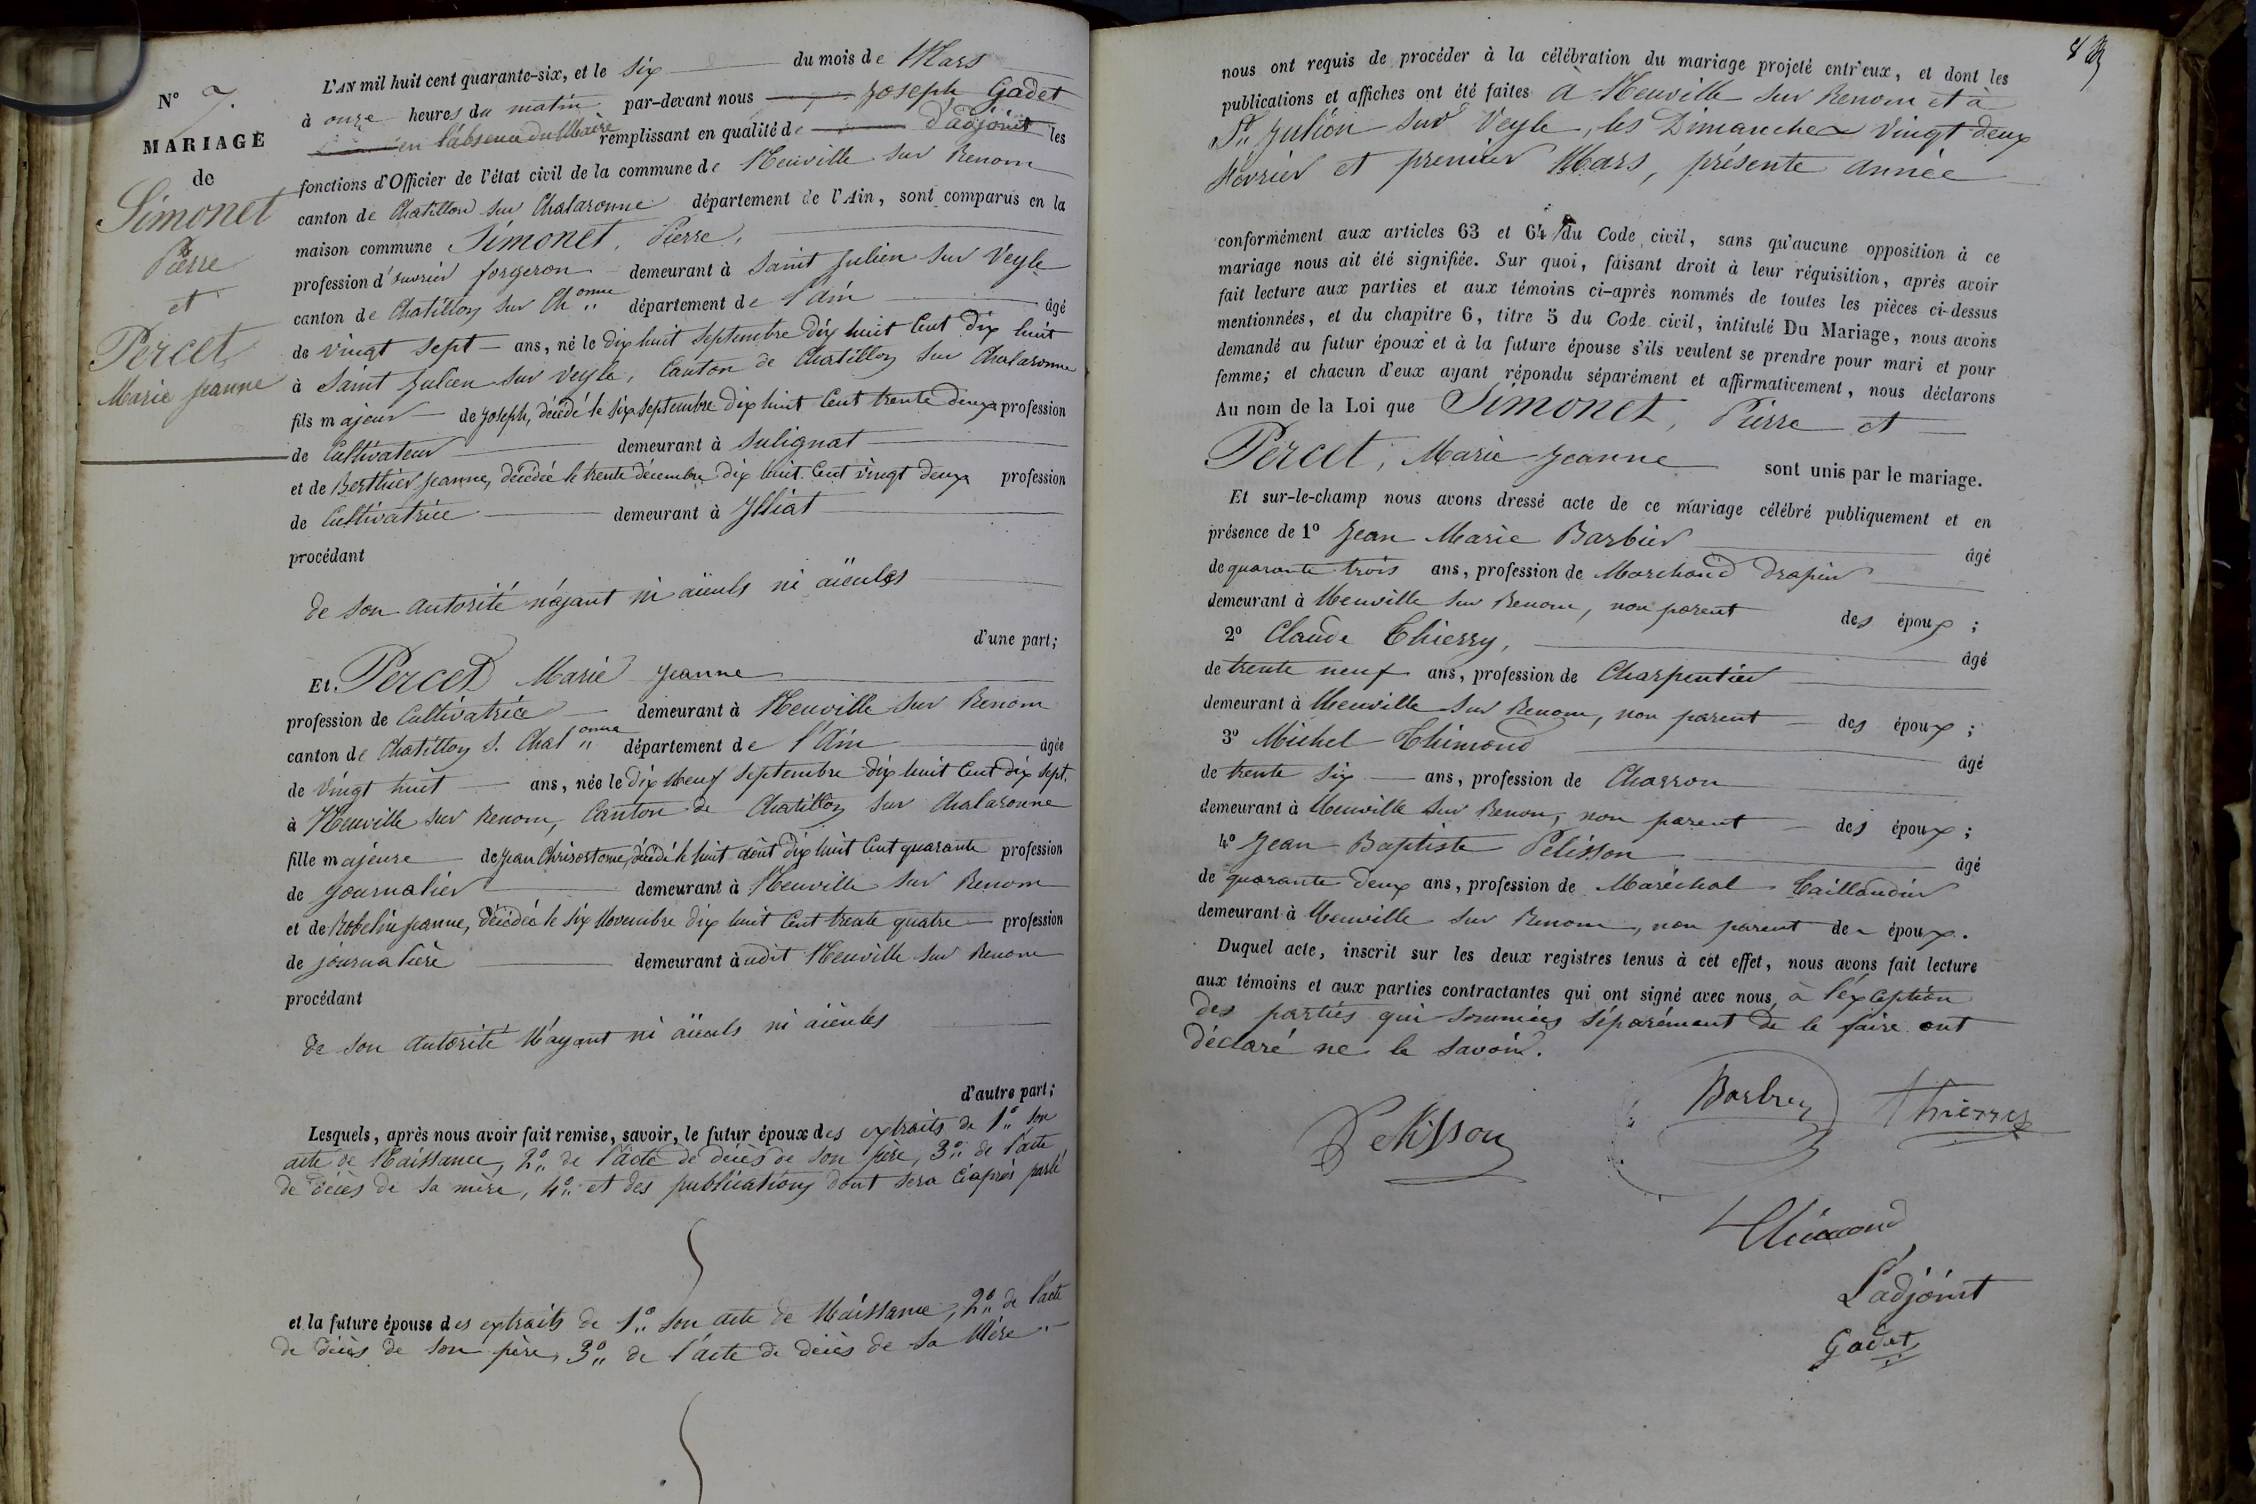 N° 7.
MARIAGE
de
Simonet
Pierre
et
Percet
Marie Jeanne
L'AN mil huit cent quarante-six, et le six du mois de Mars
à onze heures du matin par-devant nous Joseph Gadet
en l'absence du Maire remplissant en qualité de d'adjoint les
fonctions d'Officier de l'état civil de la commune de Neuville sur Renom
canton de Chatillon sur Chalaronne département de l'Ain, sont comparus en la
maison commune Simonet, Pierre,
profession d'ouvrier forgeron demeurant à Saint Julien sur Veyle
canton de Chatillon sur Ch onne département de l'Ain âgé
de vingt sept ans, né le dix huit septembre dix huit cent dix huit
à Saint Julien sur Veyle, Canton de Chatillon sur Chalaronne
fils majeur de Joseph, décédé le six septembre dix huit cent trente deux profession
de Cultivateur demeurant à Sulignat
et de Berthier Jeanne, décédée le trente décembre dix huit cent vingt deux profession
de Cultivatrice demeurant à Illiat
procédant
de son autorité n'ayant ni aïeuls ni aïeules
d'une part;
Et Percet Marie Jeanne
profession de Cultivatrice demeurant à Neuville sur Renom
canton de Chatillon s. Chal onne département de l'Ain âgée
de vingt huit ans, née le dix Neuf septembre dix huit cent dix sept.
à Neuville sur Renom, Canton de Chatillon sur Chalaronne
fille majeure de Jean Chrisostome, décédé le huit août dix huit cent quarante profession
de journalier demeurant à Neuville sur Renom
et de Robelin Jeanne, décédée le six Novembre dix huit cent trente quatre profession
de journalière demeurant à udit Neuville sur Renom
procédant
de son autorité N'ayant ni aïeuls ni aïeules
d'autre part;
Lesquels, après nous avoir fait remise, savoir, le futur époux des extraits de 1° son
acte de Naissance, 2° de l'acte de décès de son père, 3° de l'acte
de décès de sa mère, 4° et des publications dont sera ciaprès parlé
et la future épouse des extraits de 1° son acte de Naissance, 2° de l'acte
de décès de son père, 3° de l'acte de décès de sa Mère
nous ont requis de procéder à la célébration du mariage projeté entr'eux, et dont les
publications et affiches ont été faites à Neuville sur Renom et à
St. Julien sur Veyle, les Dimanches vingt deux
février et premier Mars, présente année
conformément aux articles 63 et 64 du Code civil, sans qu'aucune opposition à ce
mariage nous ait été signifiée. Sur quoi, faisant droit à leur réquisition, après avoir
fait lecture aux parties et aux témoins ci-après nommés de toutes les pièces ci-dessus
mentionnées, et du chapitre 6, titre 5 du Code civil, intitulé Du Mariage, nous avons
demandé au futur époux et à la future épouse s'ils veulent se prendre pour mari et pour
femme; et chacun d'eux ayant répondu séparément et affirmativement, nous déclarons
Au nom de la Loi que Simonet, Pierre et
Percet, Marie Jeanne sont unis par le mariage.
Et sur-le-champ nous avons dressé acte de ce mariage célébré publiquement et en
présence de 1° Jean Marie Barbier âgé
de quarante trois ans, profession de Marchand Drapier
demeurant à Neuville sur Renom, non parent des époux;
2° Claude Thierry, âgé
de trente neuf ans, profession de Charpentier
demeurant à Neuville sur Renom, non parent des époux;
3° Michel Thimond âgé
de trente six ans, profession de Charron
demeurant à Neuville sur Renom, non parent des époux;
4° Jean Baptiste Pelisson âgé
de quarante deux ans, profession de Maréchal Taillandier
demeurant à Neuville sur Renom, non parent des époux.
Duquel acte, inscrit sur les deux registres tenus à cet effet, nous avons fait lecture
aux témoins et aux parties contractantes qui ont signé avec nous, à l'exception
des parties qui sommées séparément de le faire ont
déclaré ne le savoir.
Barbier Thierry
Pelisson
Thimond
L'adjoint
Gadet